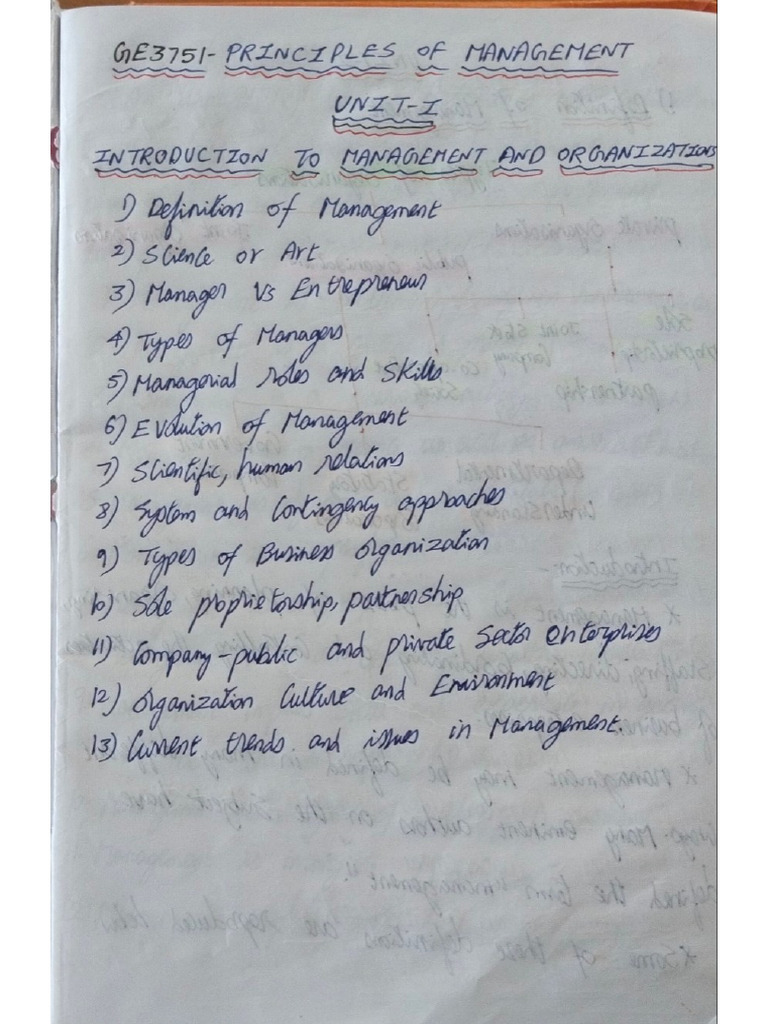 GE3751- PRINCIPLES OF MANAGEMENT
UNIT-I
INTRODUCTION TO MANAGEMENT AND ORGANIZATIONS
1) Definition of Management
2) Science or Art
3) Manager Vs Entrepreneur
4) Types of Managers
5) Managerial roles and Skills
6) Evolution of Management
7) Scientific, human relations
8) System and Contingency approaches
9) Types of Business Organization
10) Sole proprietorship, partnership
11) Company-public and private Sector Enterprises
12) Organization Culture and Environment
13) Current trends and issues in Management.